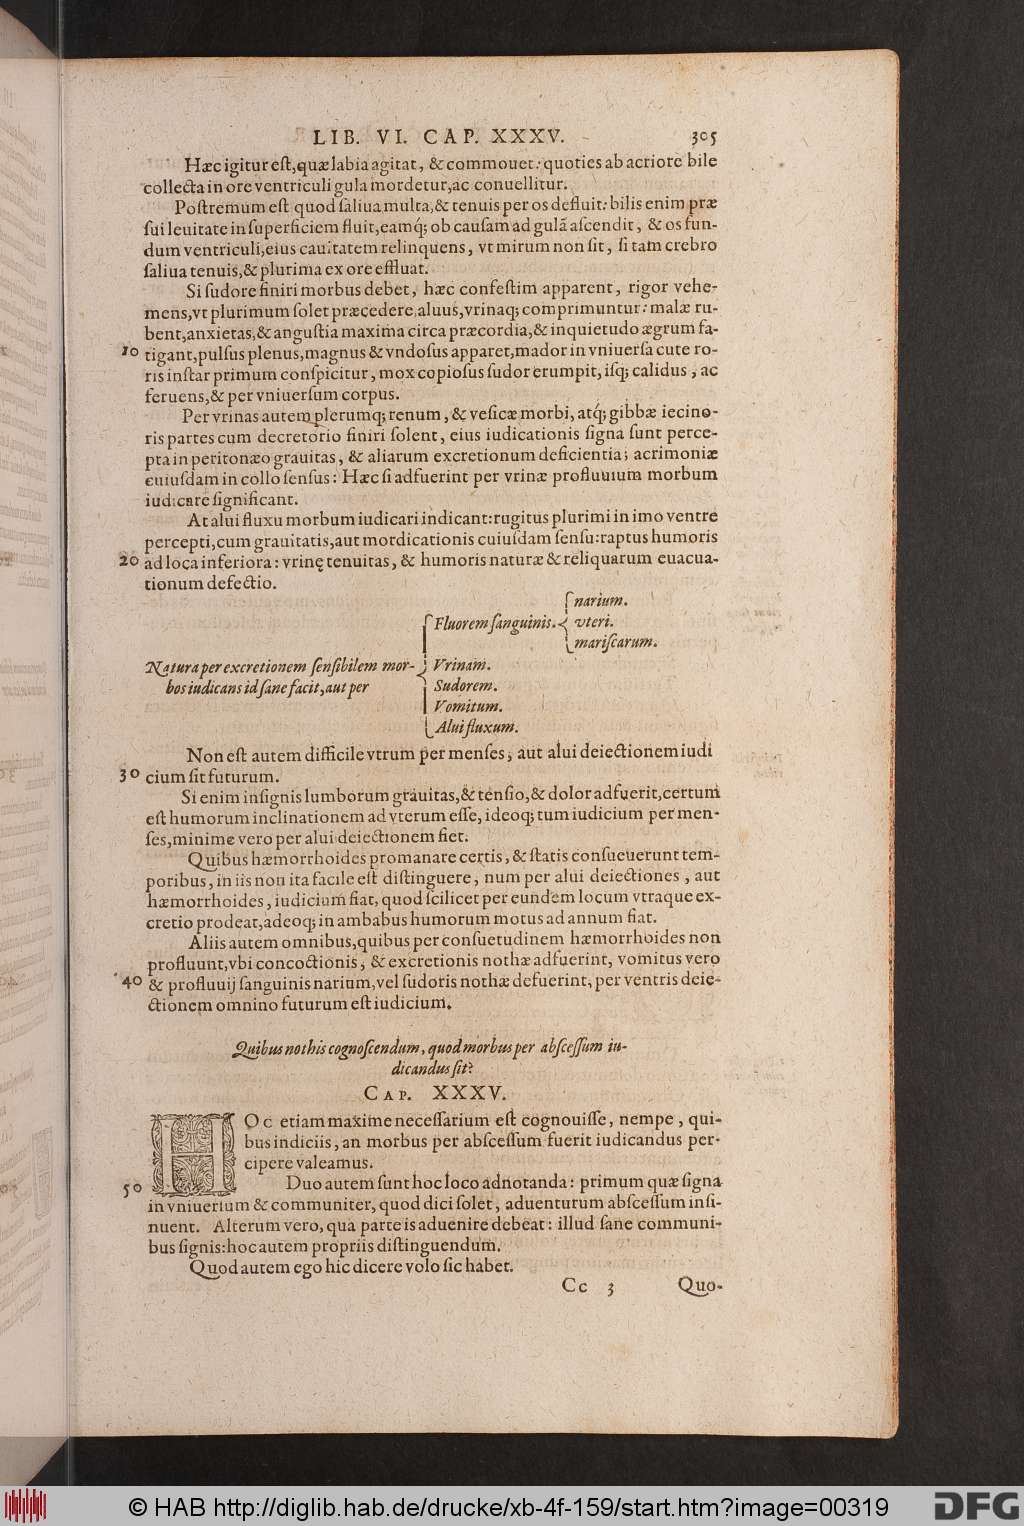 LIB. VI. CAP. XXXV. 305
Hæc igitur eſt, quæ labia agitat, & commouet: quoties ab acriore bile
collecta in ore ventriculi gula mordetur, ac conuellitur.
Poſtremum eſt quod ſaliua multa, & tenuis per os defluit: bilis enim præ
ſui leuitate in ſuperficiem fluit, eamq́; ob cauſam ad gulã aſcendit, & os fun-
dum ventriculi, eius cauitatem relinquens, vt mirum non ſit, ſi tam crebro
ſaliua tenuis, & plurima ex ore effluat.
Si ſudore finiri morbus debet, hæc confeſtim apparent, rigor vehe-
mens, vt plurimum ſolet præcedere, aluus, vrinaq; comprimuntur: malæ ru-
bent, anxietas, & anguſtia maxima circa præcordia, & inquietudo ægrum fa-
10 tigant, pulſus plenus, magnus & vndoſus apparet, mador in vniuerſa cute ro-
ris inſtar primum conſpicitur, mox copioſus ſudor erumpit, iſq; calidus, ac
feruens, & per vniuerſum corpus.
Per vrinas autem plerumq; renum, & veſicæ morbi, atq́; gibbæ iecino-
ris partes cum decretorio finiri ſolent, eius iudicationis ſigna ſunt perce-
pta in peritonæo grauitas, & aliarum excretionum deficientia; acrimoniæ
cuiuſdam in collo ſenſus: Hæc ſi adfuerint per vrinæ profluuium morbum
iudicare ſignificant.
At alui fluxu morbum iudicari indicant: rugitus plurimi in imo ventre
percepti, cum grauitatis, aut mordicationis cuiuſdam ſenſu: raptus humoris
20 ad loca inferiora: vrinę tenuitas, & humoris naturæ & reliquarum euacua-
tionum defectio.
narium.
Fluorem ſanguinis. vteri.
mariſcarum.
Natura per excretionem ſenſibilem mor- Vrinam.
bos iudicans id ſane facit, aut per Sudorem.
Vomitum.
Alui fluxum.
Non eſt autem difficile vtrum per menſes, aut alui deiectionem iudi
30 cium ſit futurum.
Si enim inſignis lumborum grauitas, & tenſio, & dolor adfuerit, certum
eſt humorum inclinationem ad vterum eſſe, ideoq; tum iudicium per men-
ſes, minime vero per alui deiectionem fiet.
Quibus hæmorrhoides promanare certis, & ſtatis conſueuerunt tem-
poribus, in iis non ita facile eſt diſtinguere, num per alui deiectiones, aut
hæmorrhoides, iudicium fiat, quod ſcilicet per eundem locum vtraque ex-
cretio prodeat, adeoq; in ambabus humorum motus ad annum fiat.
Aliis autem omnibus, quibus per conſuetudinem hæmorrhoides non
profluunt, vbi concoctionis, & excretionis nothæ adfuerint, vomitus vero
40 & profluuij ſanguinis narium, vel ſudoris nothæ defuerint, per ventris deie-
ctionem omnino futurum eſt iudicium.
Quibus nothis cognoſcendum, quod morbus per abſceſſum iu-
dicandus ſit?
CAP. XXXV.
HOc etiam maxime neceſſarium eſt cognouiſſe, nempe, qui-
bus indiciis, an morbus per abſceſſum fuerit iudicandus per-
cipere valeamus.
50 Duo autem ſunt hoc loco adnotanda: primum quæ ſigna
in vniuerſum & communiter, quod dici ſolet, aduenturum abſceſſum inſi-
nuent. Alterum vero, qua parte is aduenire debeat: illud ſane communi-
bus ſignis: hoc autem propriis diſtinguendum.
Quod autem ego hic dicere volo ſic habet.
Cc 3 Quo-
© HAB http://diglib.hab.de/drucke/xb-4f-159/start.htm?image=00319
DFG